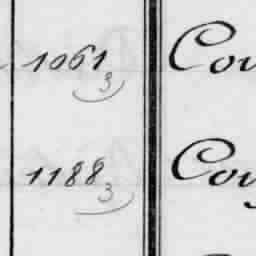 1061 3 Cou
1188 3 Cou